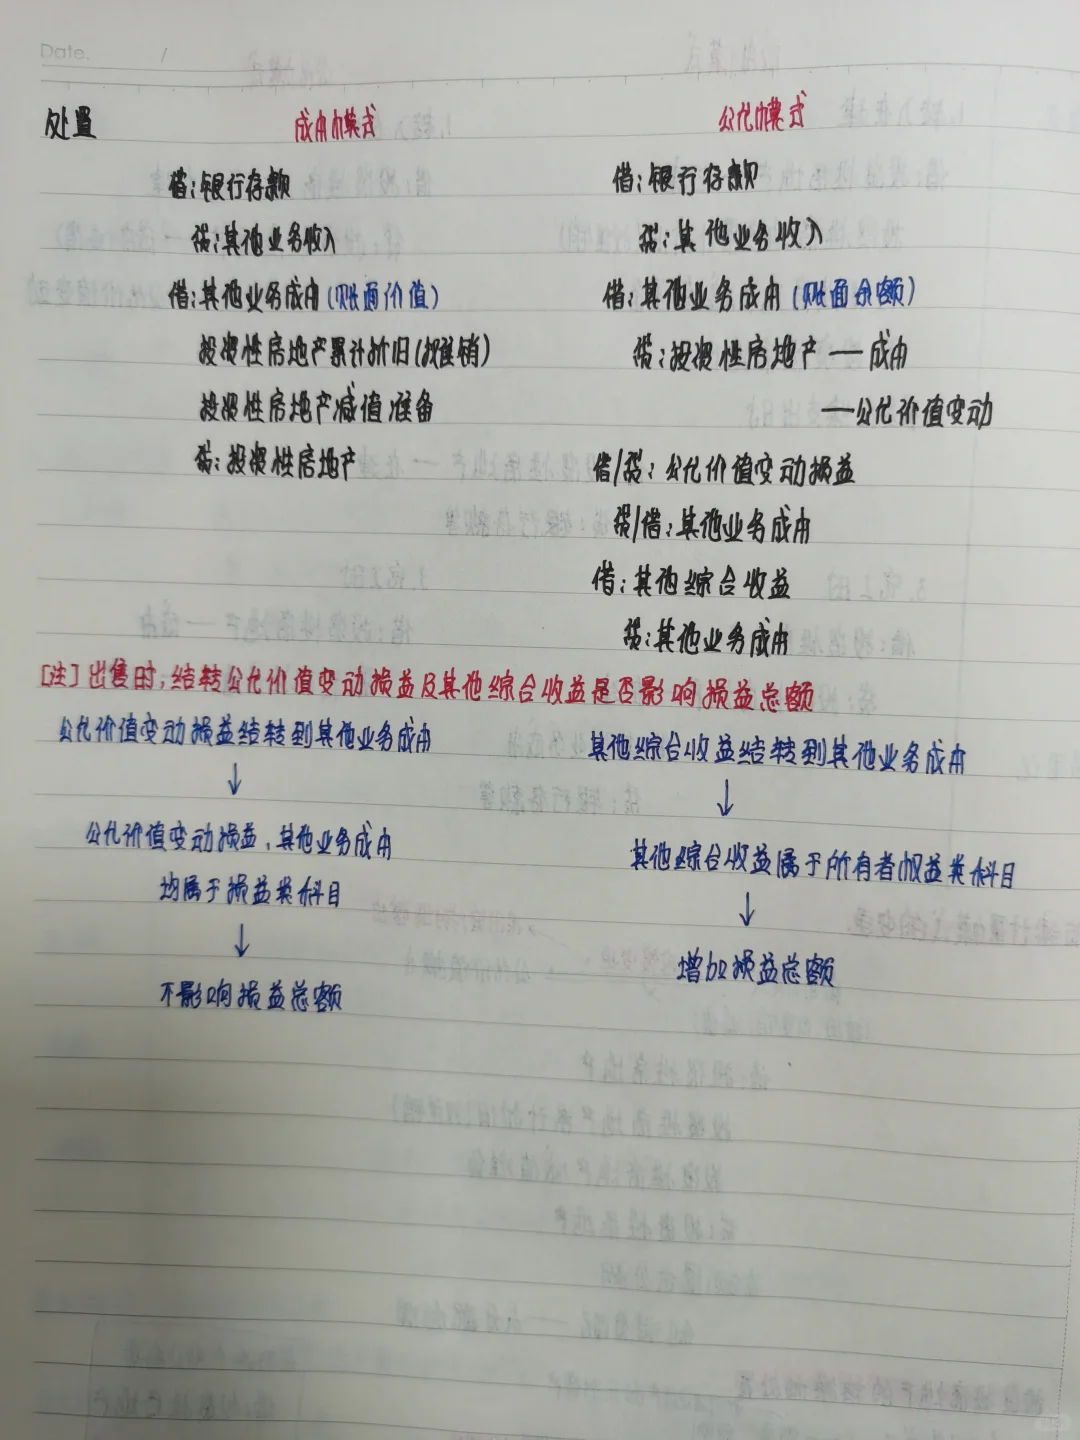 Date. /
处置
成本模式
借:银行存款
贷:其他业务收入
借:其他业务成本(账面价值)
投资性房地产累计折旧(摊销)
投资性房地产减值准备
贷:投资性房地产
公允模式
借:银行存款
贷:其他业务收入
借:其他业务成本(账面余额)
贷:投资性房地产——成本
——公允价值变动
借/贷:公允价值变动损益
贷/借:其他业务成本
借:其他综合收益
贷:其他业务成本
[注]出售时,结转公允价值变动损益及其他综合收益是否影响损益总额
公允价值变动损益结转到其他业务成本
↓
公允价值变动损益,其他业务成本
均属于损益类科目
↓
不影响损益总额
其他综合收益结转到其他业务成本
↓
其他综合收益属于所有者权益类科目
↓
增加损益总额